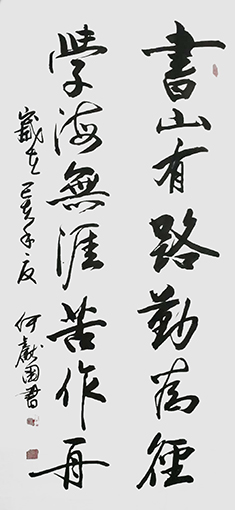 書山有路勤為徑
學海無涯苦作舟
歲在己亥年夏 何獻國書